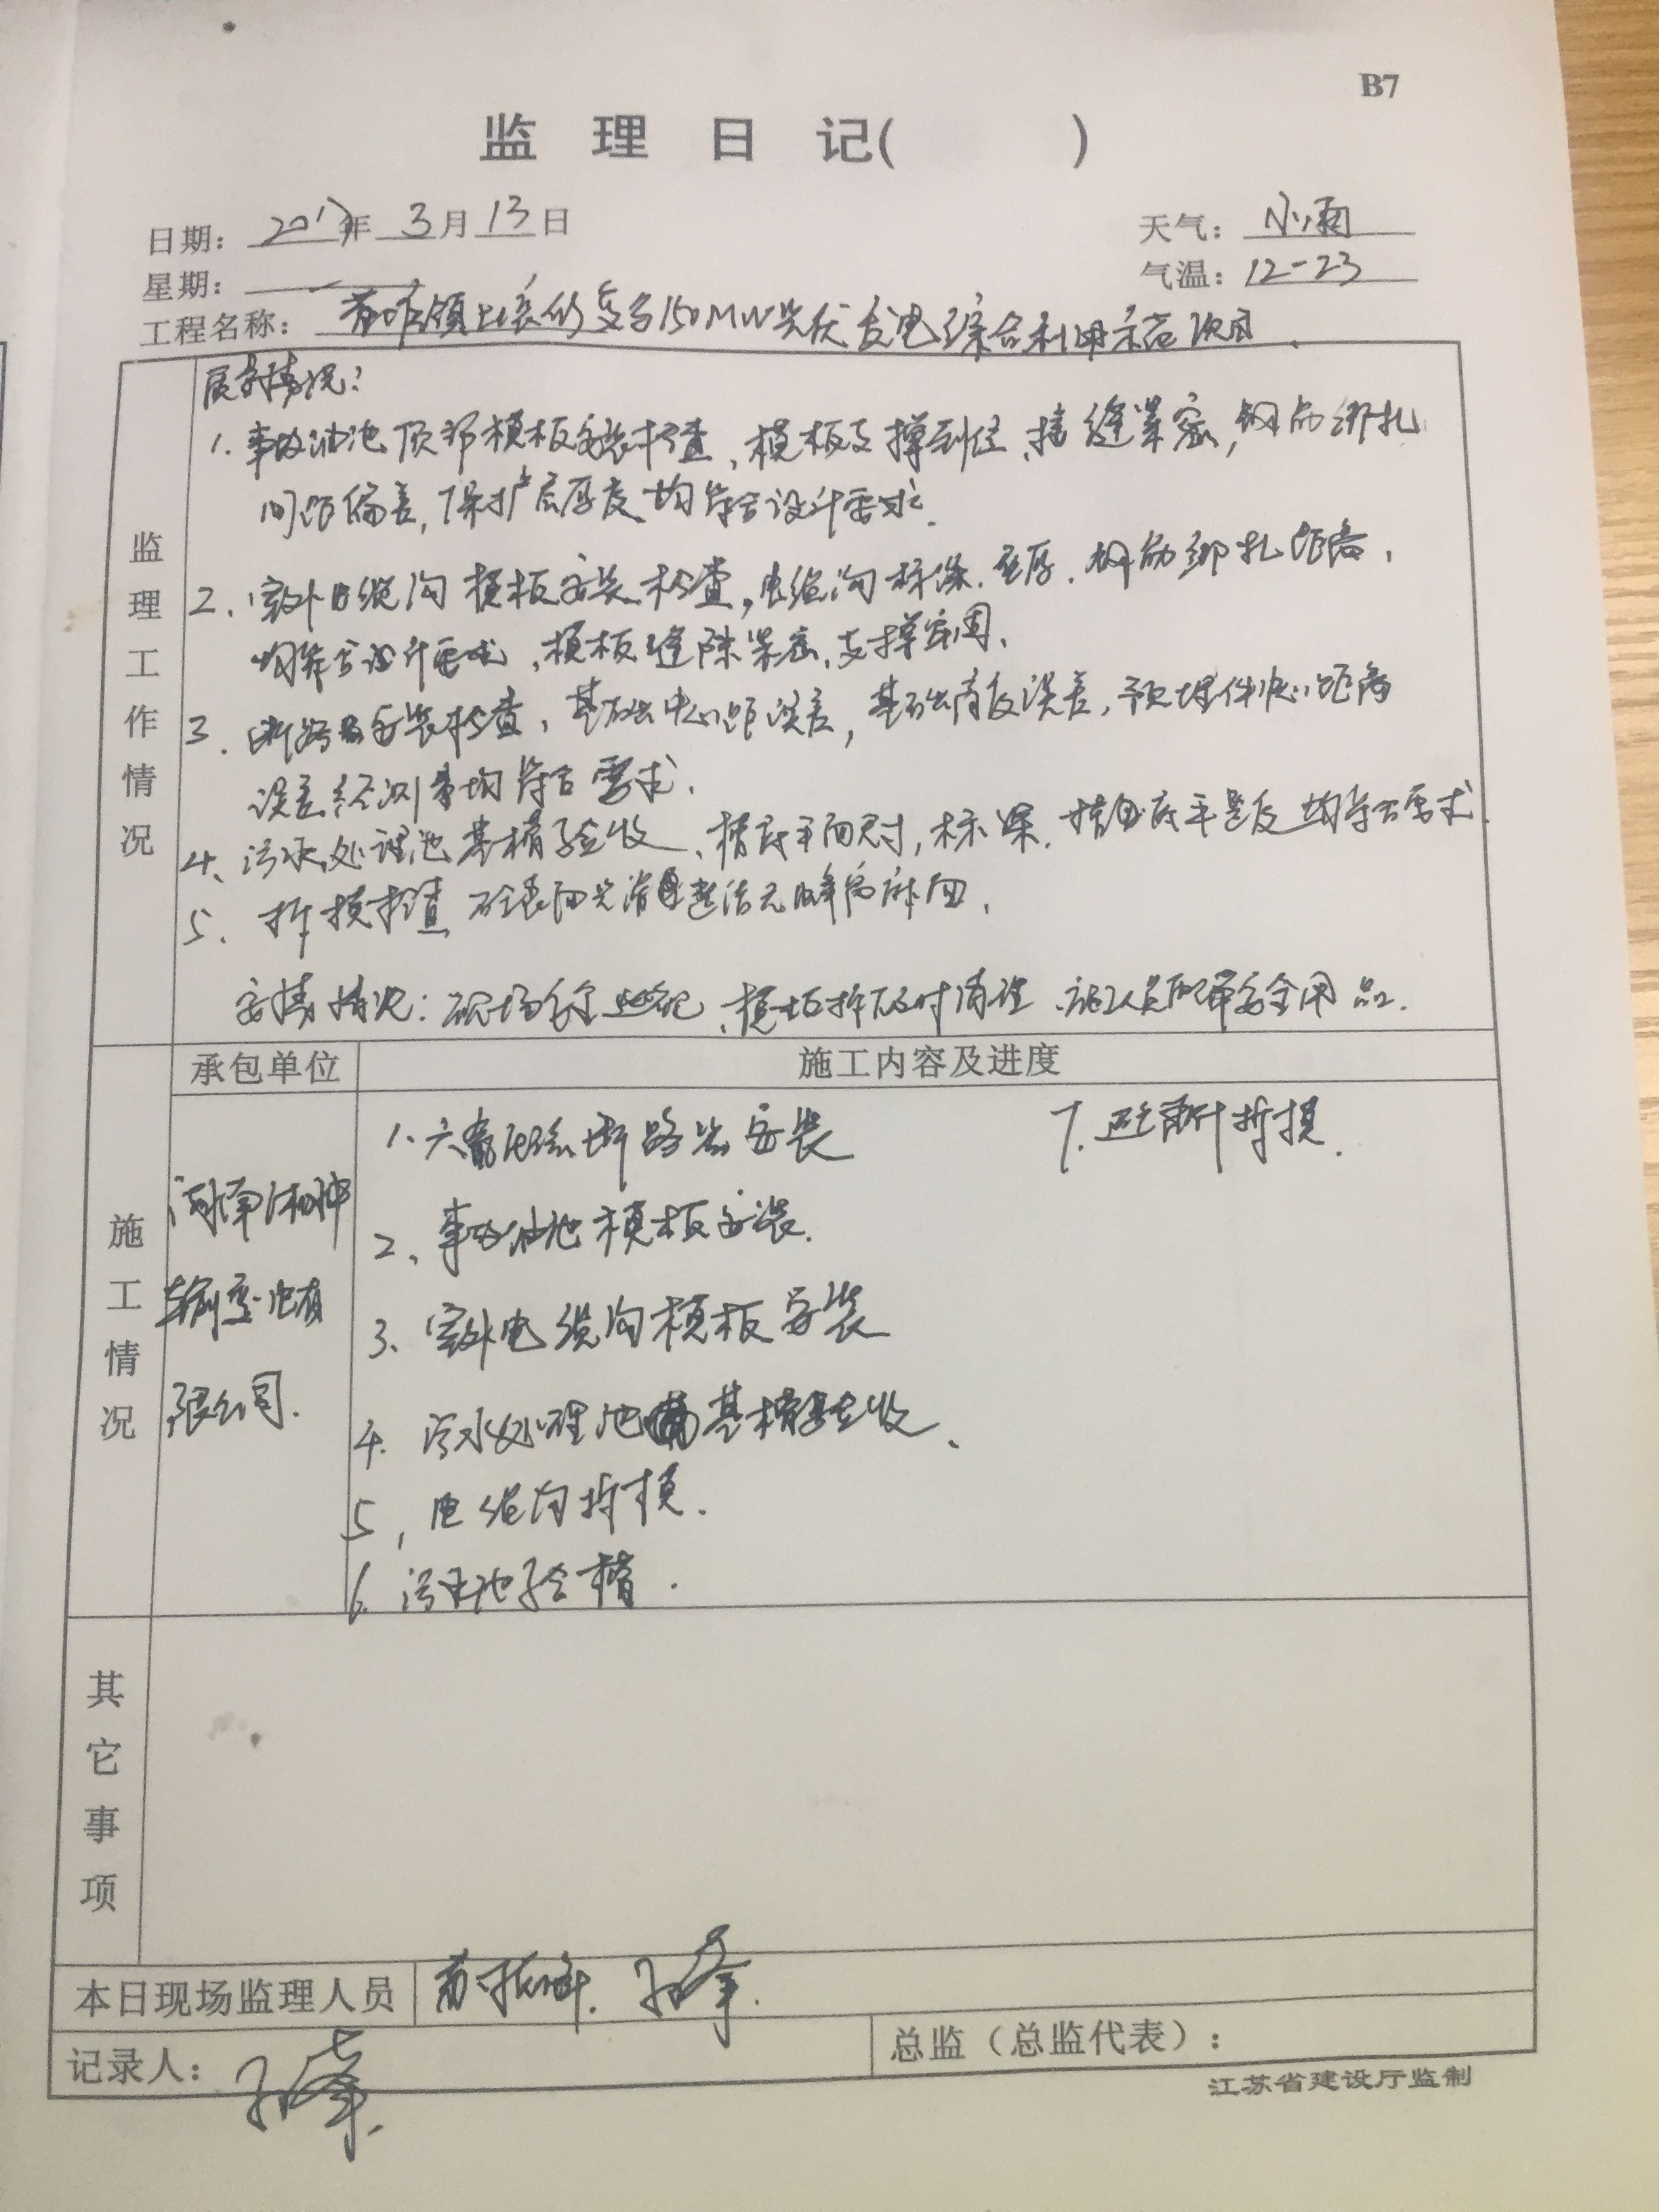 B7
监理日记( )
日期: 2017年 3月 13日
天气: 小雨
星期: 一
气温: 12-23
工程名称: 150MW光伏发电综合利用示范项目
监理工作情况
质量情况:
1. 事故油池顶部模板安装检查、模板支撑到位、接缝紧密,钢筋绑扎
间距偏差,保护层厚度均符合设计要求.
2. 室外电缆沟模板安装检查,电缆沟标深.垫厚.钢筋绑扎距离,
均符合设计要求,模板缝隙紧密,支撑牢固、
3. 断路器安装检查,基础中心距误差,基础高度误差,预埋件中心距离
误差经测量均符合要求.
4、污水处理池基槽验收、槽底平面尺寸,标深.均符合要求.
5. 拆模检查 砼表面光滑整洁无蜂窝麻面、
情况: 现场 模板拆除及时清理、施工人员配戴安全用品.
承包单位
施工内容及进度
施工情况
输变电有
限公司.
1. 断路器安装
2、事故油池模板安装.
3、室外电缆沟模板安装
4. 污水处理池基槽验收、
5, 电缆沟拆模.
6. 污水池验槽.
7. 避雷针拆模.
其它事项
本日现场监理人员
记录人:
总监(总监代表):
江苏省建设厅监制